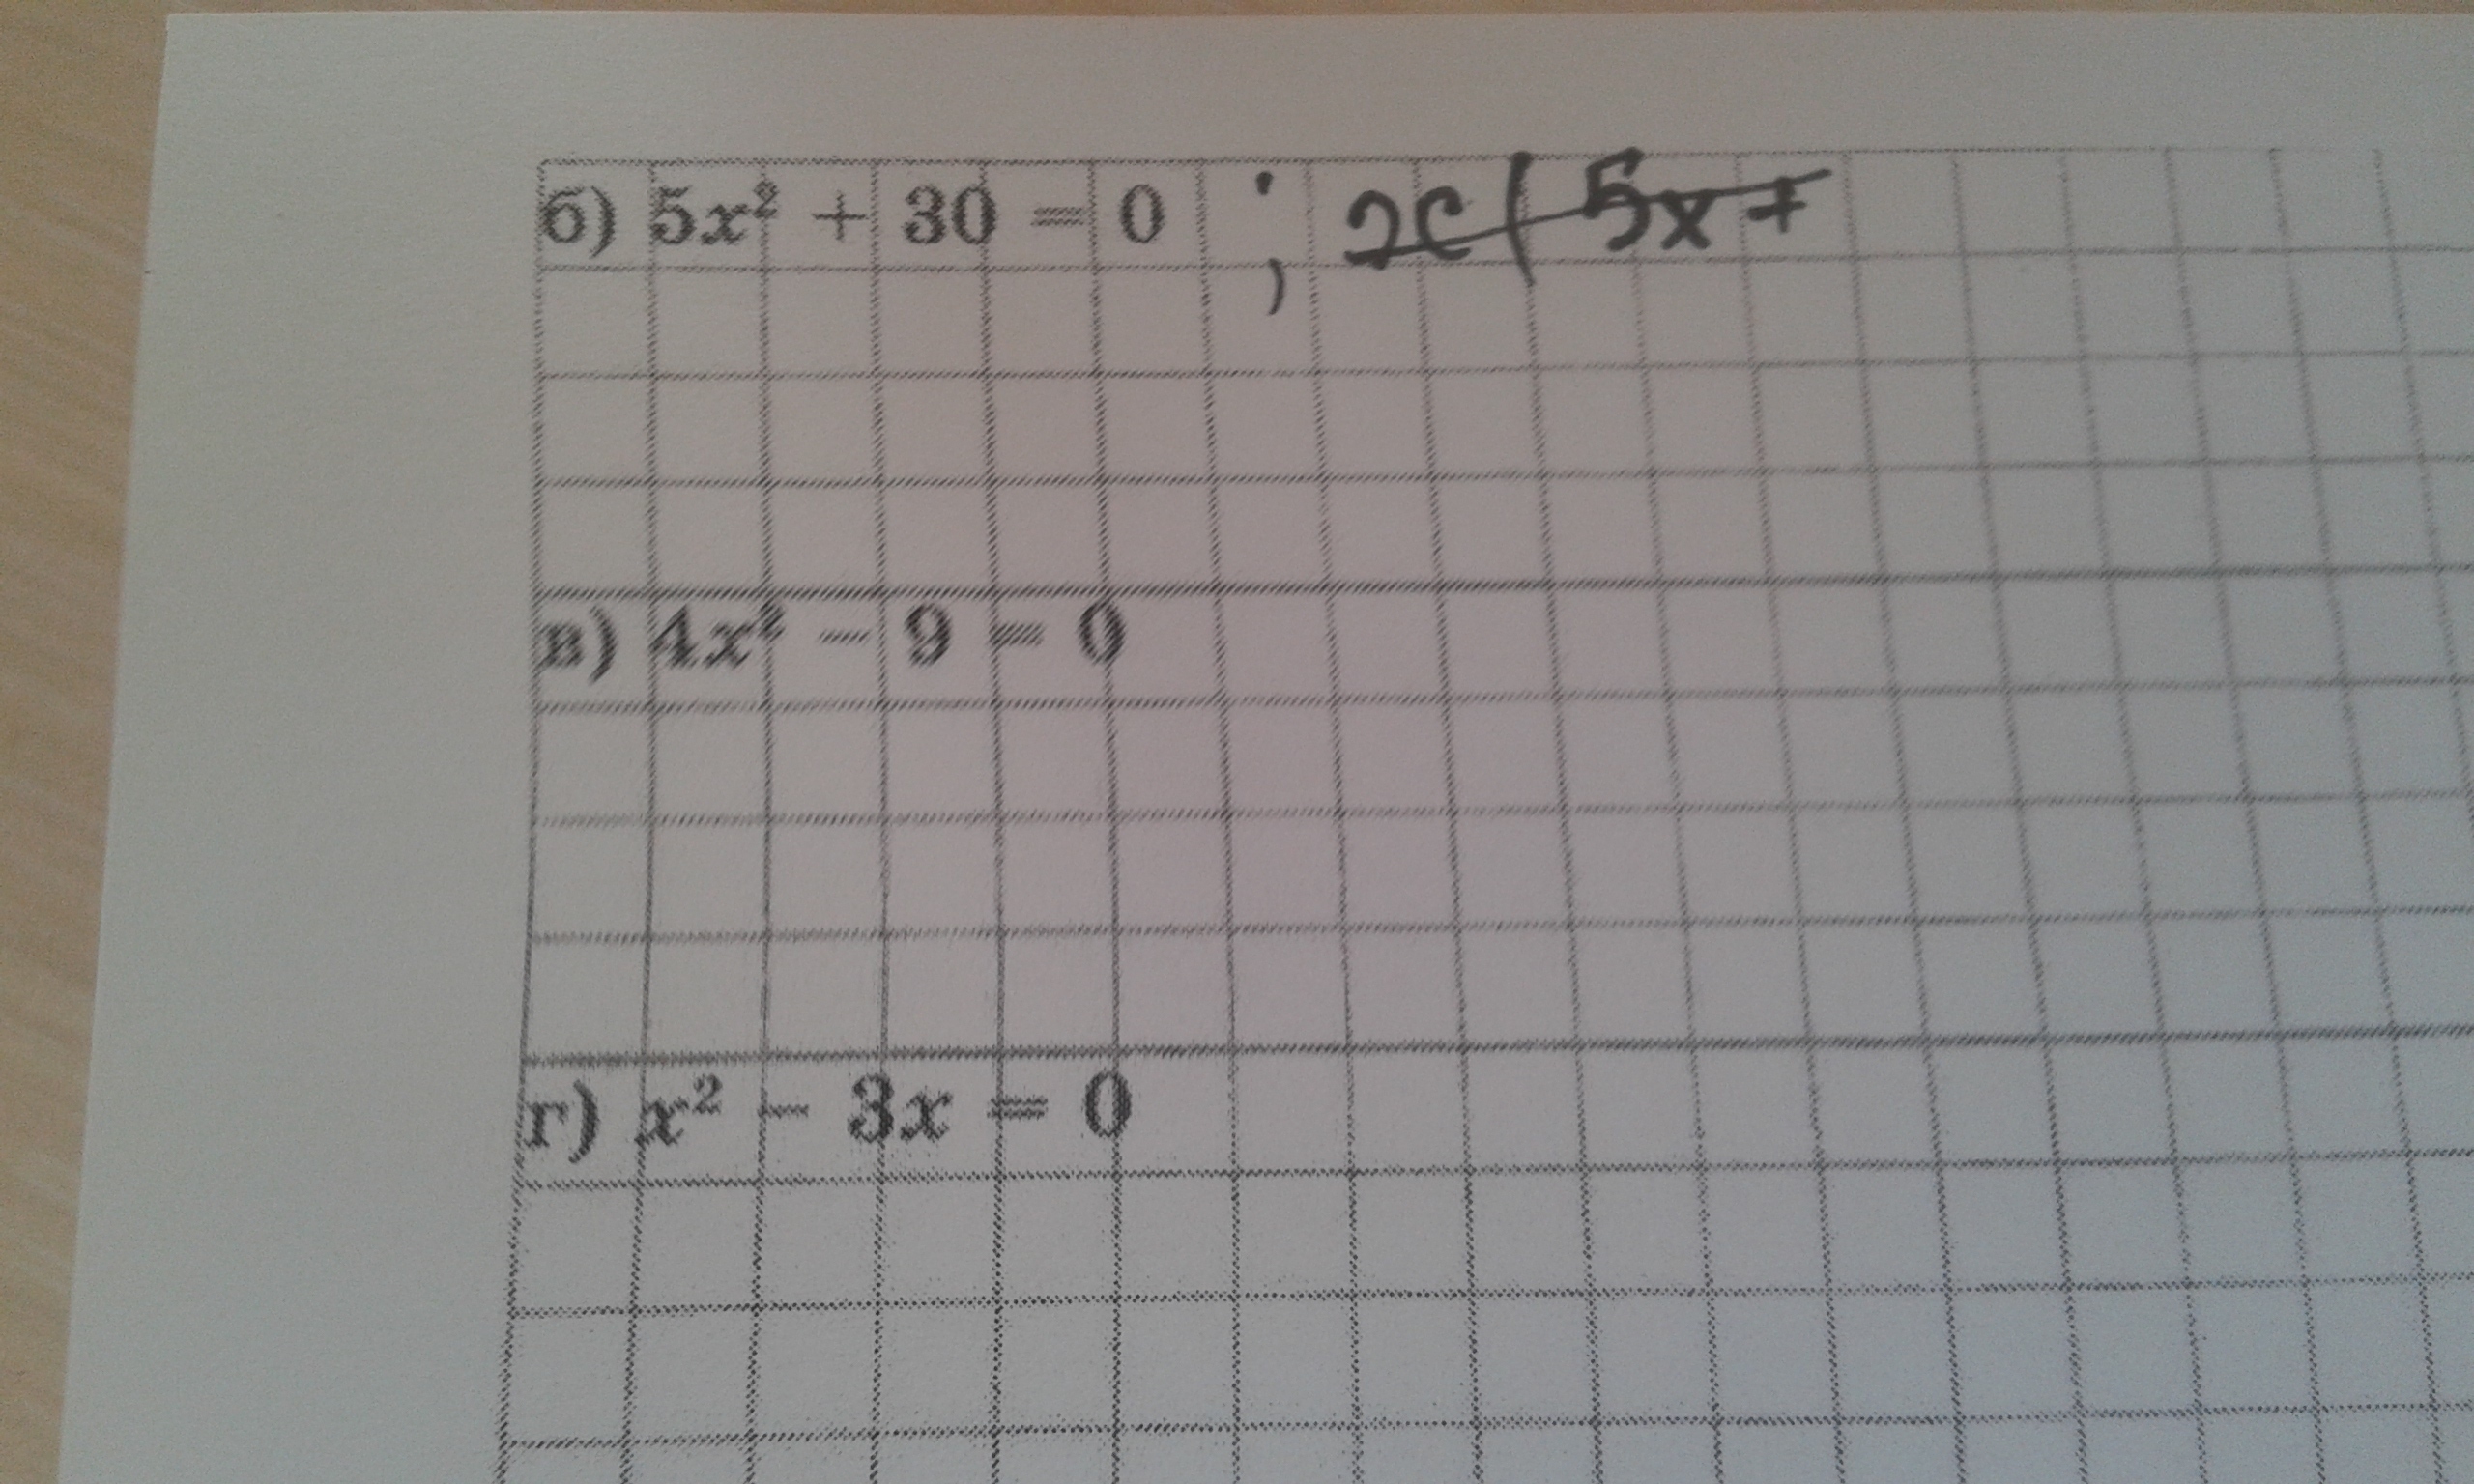 б) 5x² + 30 = 0 ; x(5x +
в) 4x² − 9 = 0
г) x² − 3x = 0